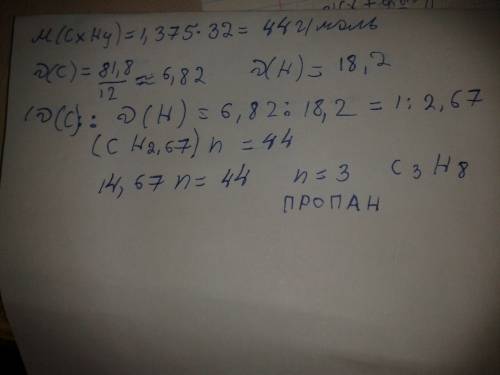 M(CxHy)=1,375·32= 44г/моль
ν(C)=81,8/12≈6,82 ν(H)=18,2
ν(C): ν(H)=6,82:18,2=1:2,67
(CH2,67)n=44
14,67n=44 n=3 C3H8
ПРОПАН